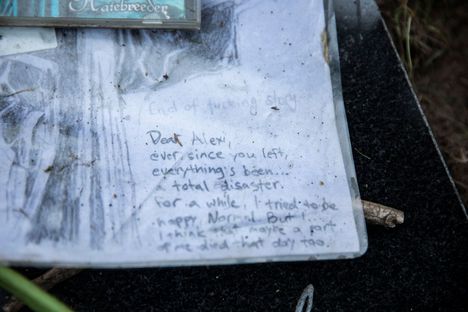 Hatebreeder
End of fucking story
Dear Alexi,
ever since you left,
everything's been...
a total disaster.
For a while, I tried to be
happy. Normal. But I
think that maybe a part
of me died that day too.